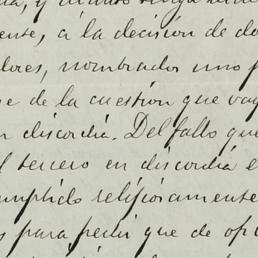 ente, á la decision de do
lores, nombrados uno p
se de la cuestion que vay
n discordia. Del fallo que
l tercero en discordia e
umplido relijiosamente
s para pedir que de ofi